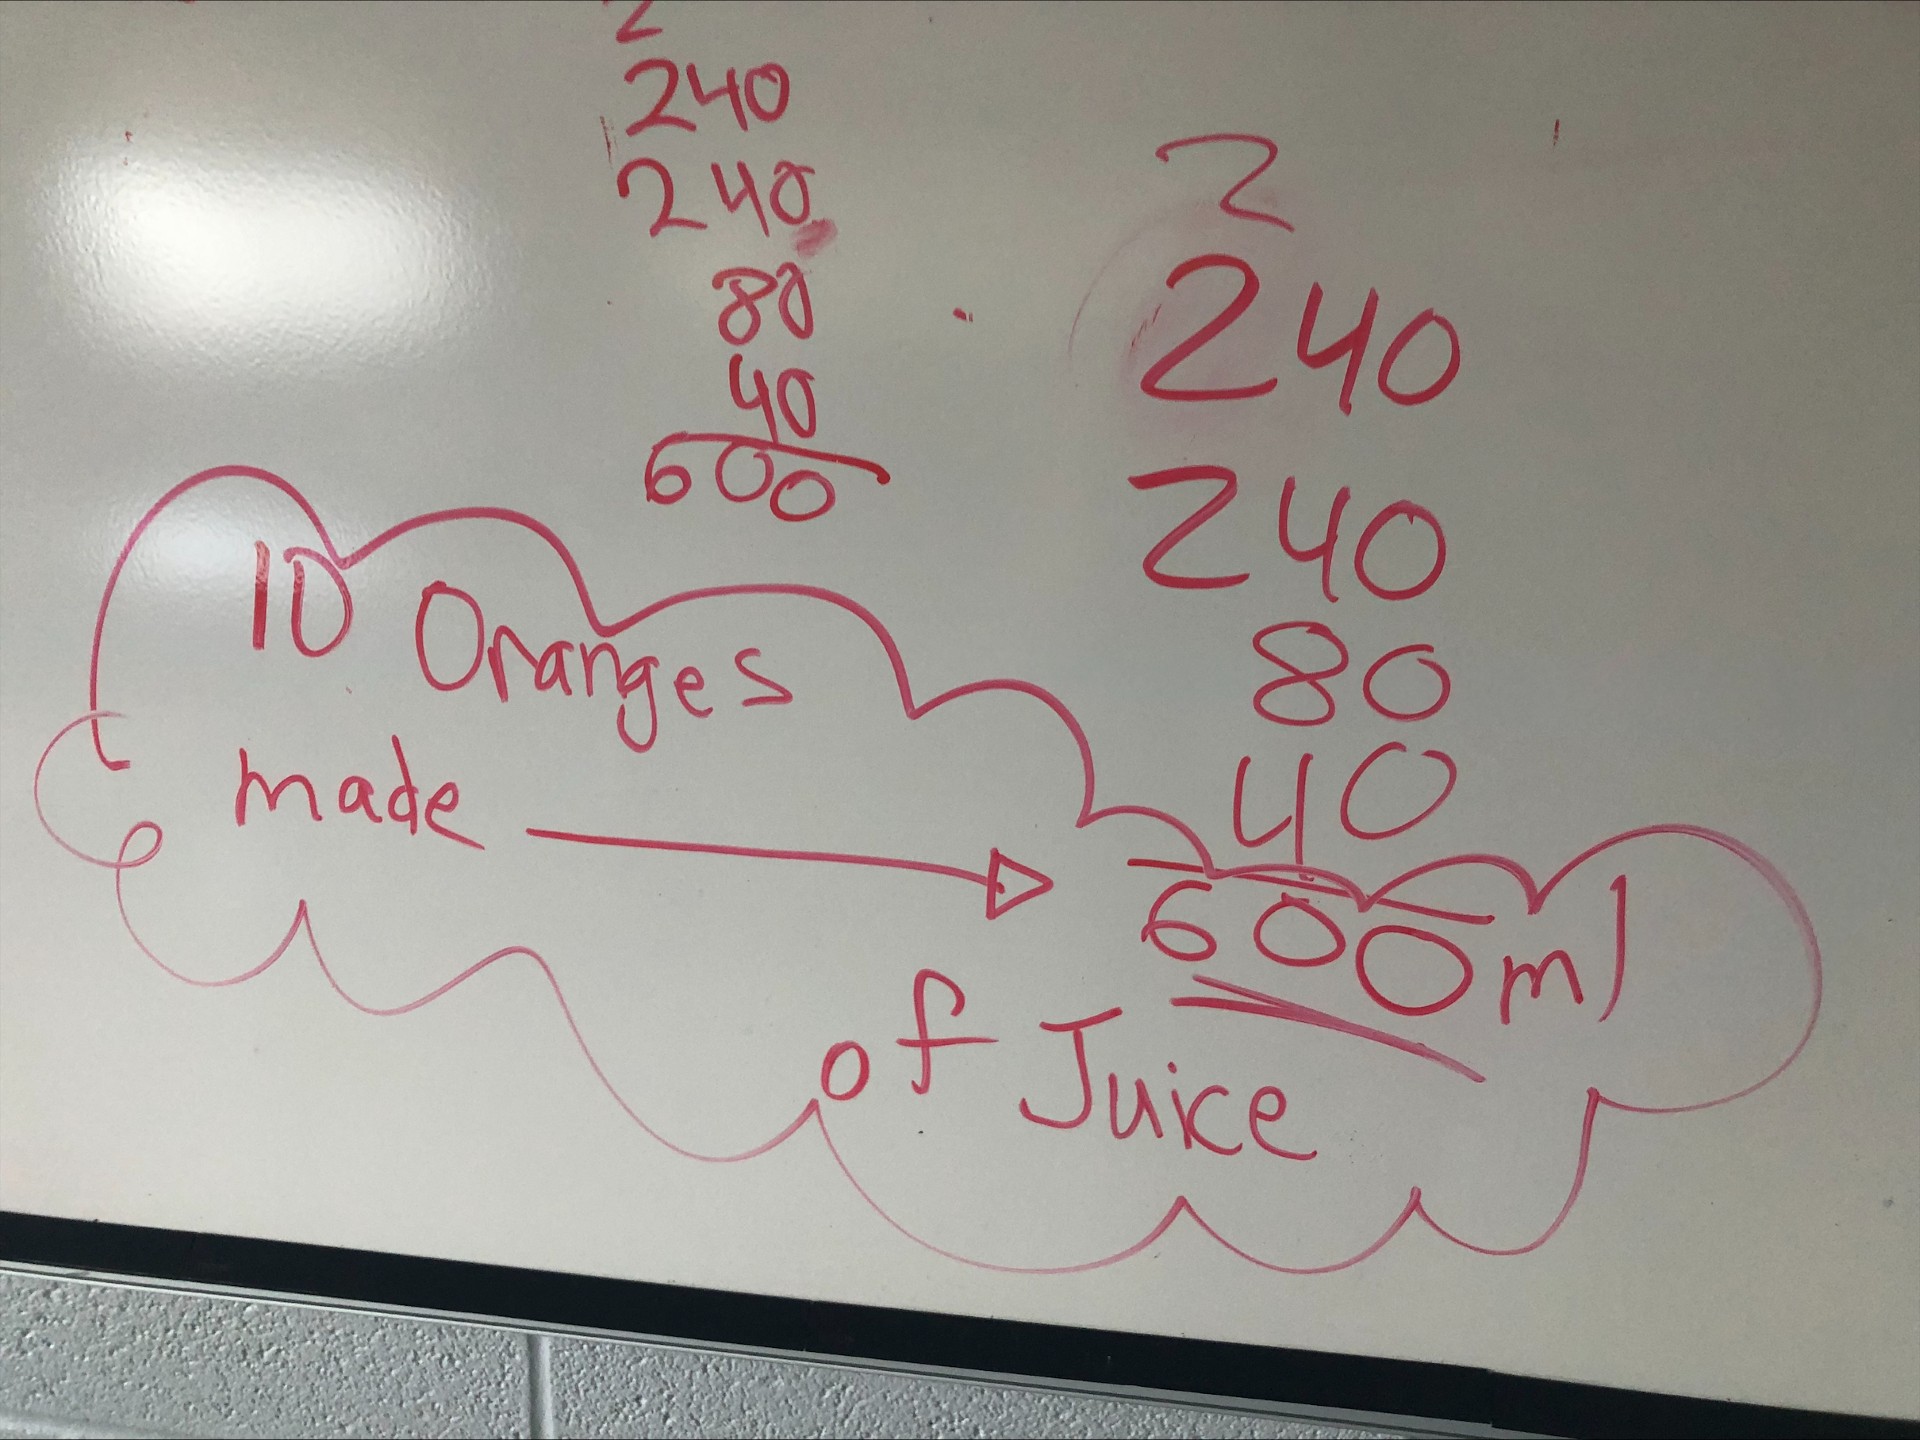 2
240
240
80
40
600
2
240
240
80
40
10 Oranges
made
600 ml
of Juice